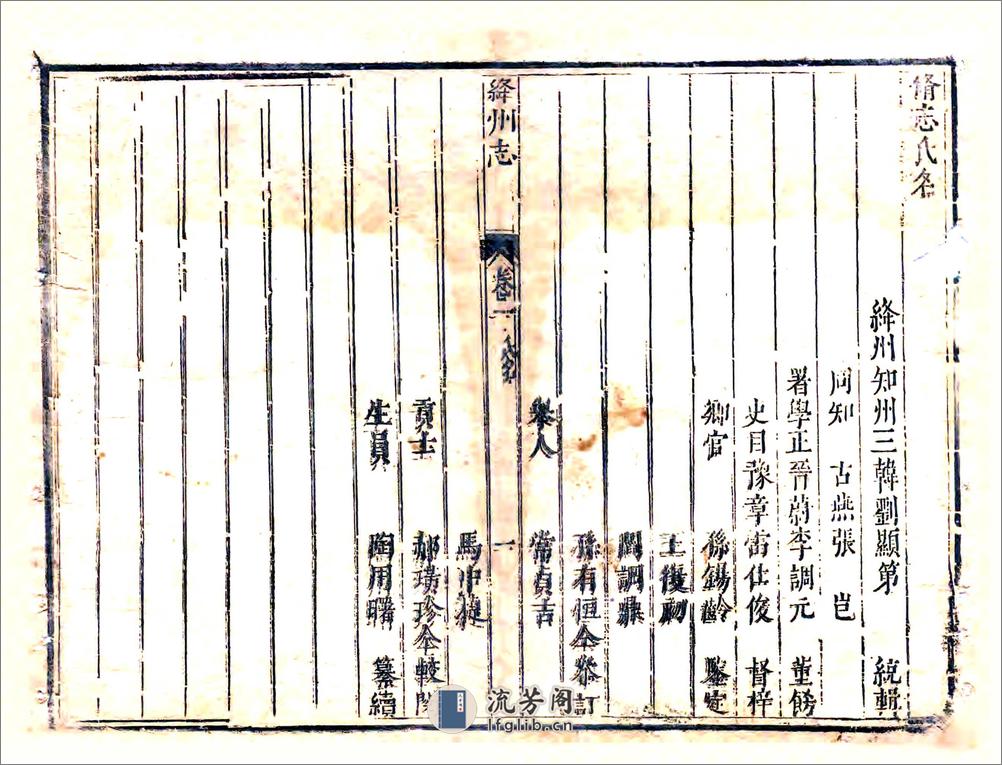 脩志氏名
絳州知州三韓劉顯第 統輯
同知 古燕張 岂
署學正晉蔚李調元 董餙
吏目豫章雷仕俊 督梓
鄉官 孫錫齡 鑒定
王復初
閻調鼎
孫有恒仝叅訂
舉人 常貞吉
絳州志 卷一 一
馬中
貢士 郝璞珍仝較閱
生員 陶用曙 纂續
流芳阁
lfglib.cn